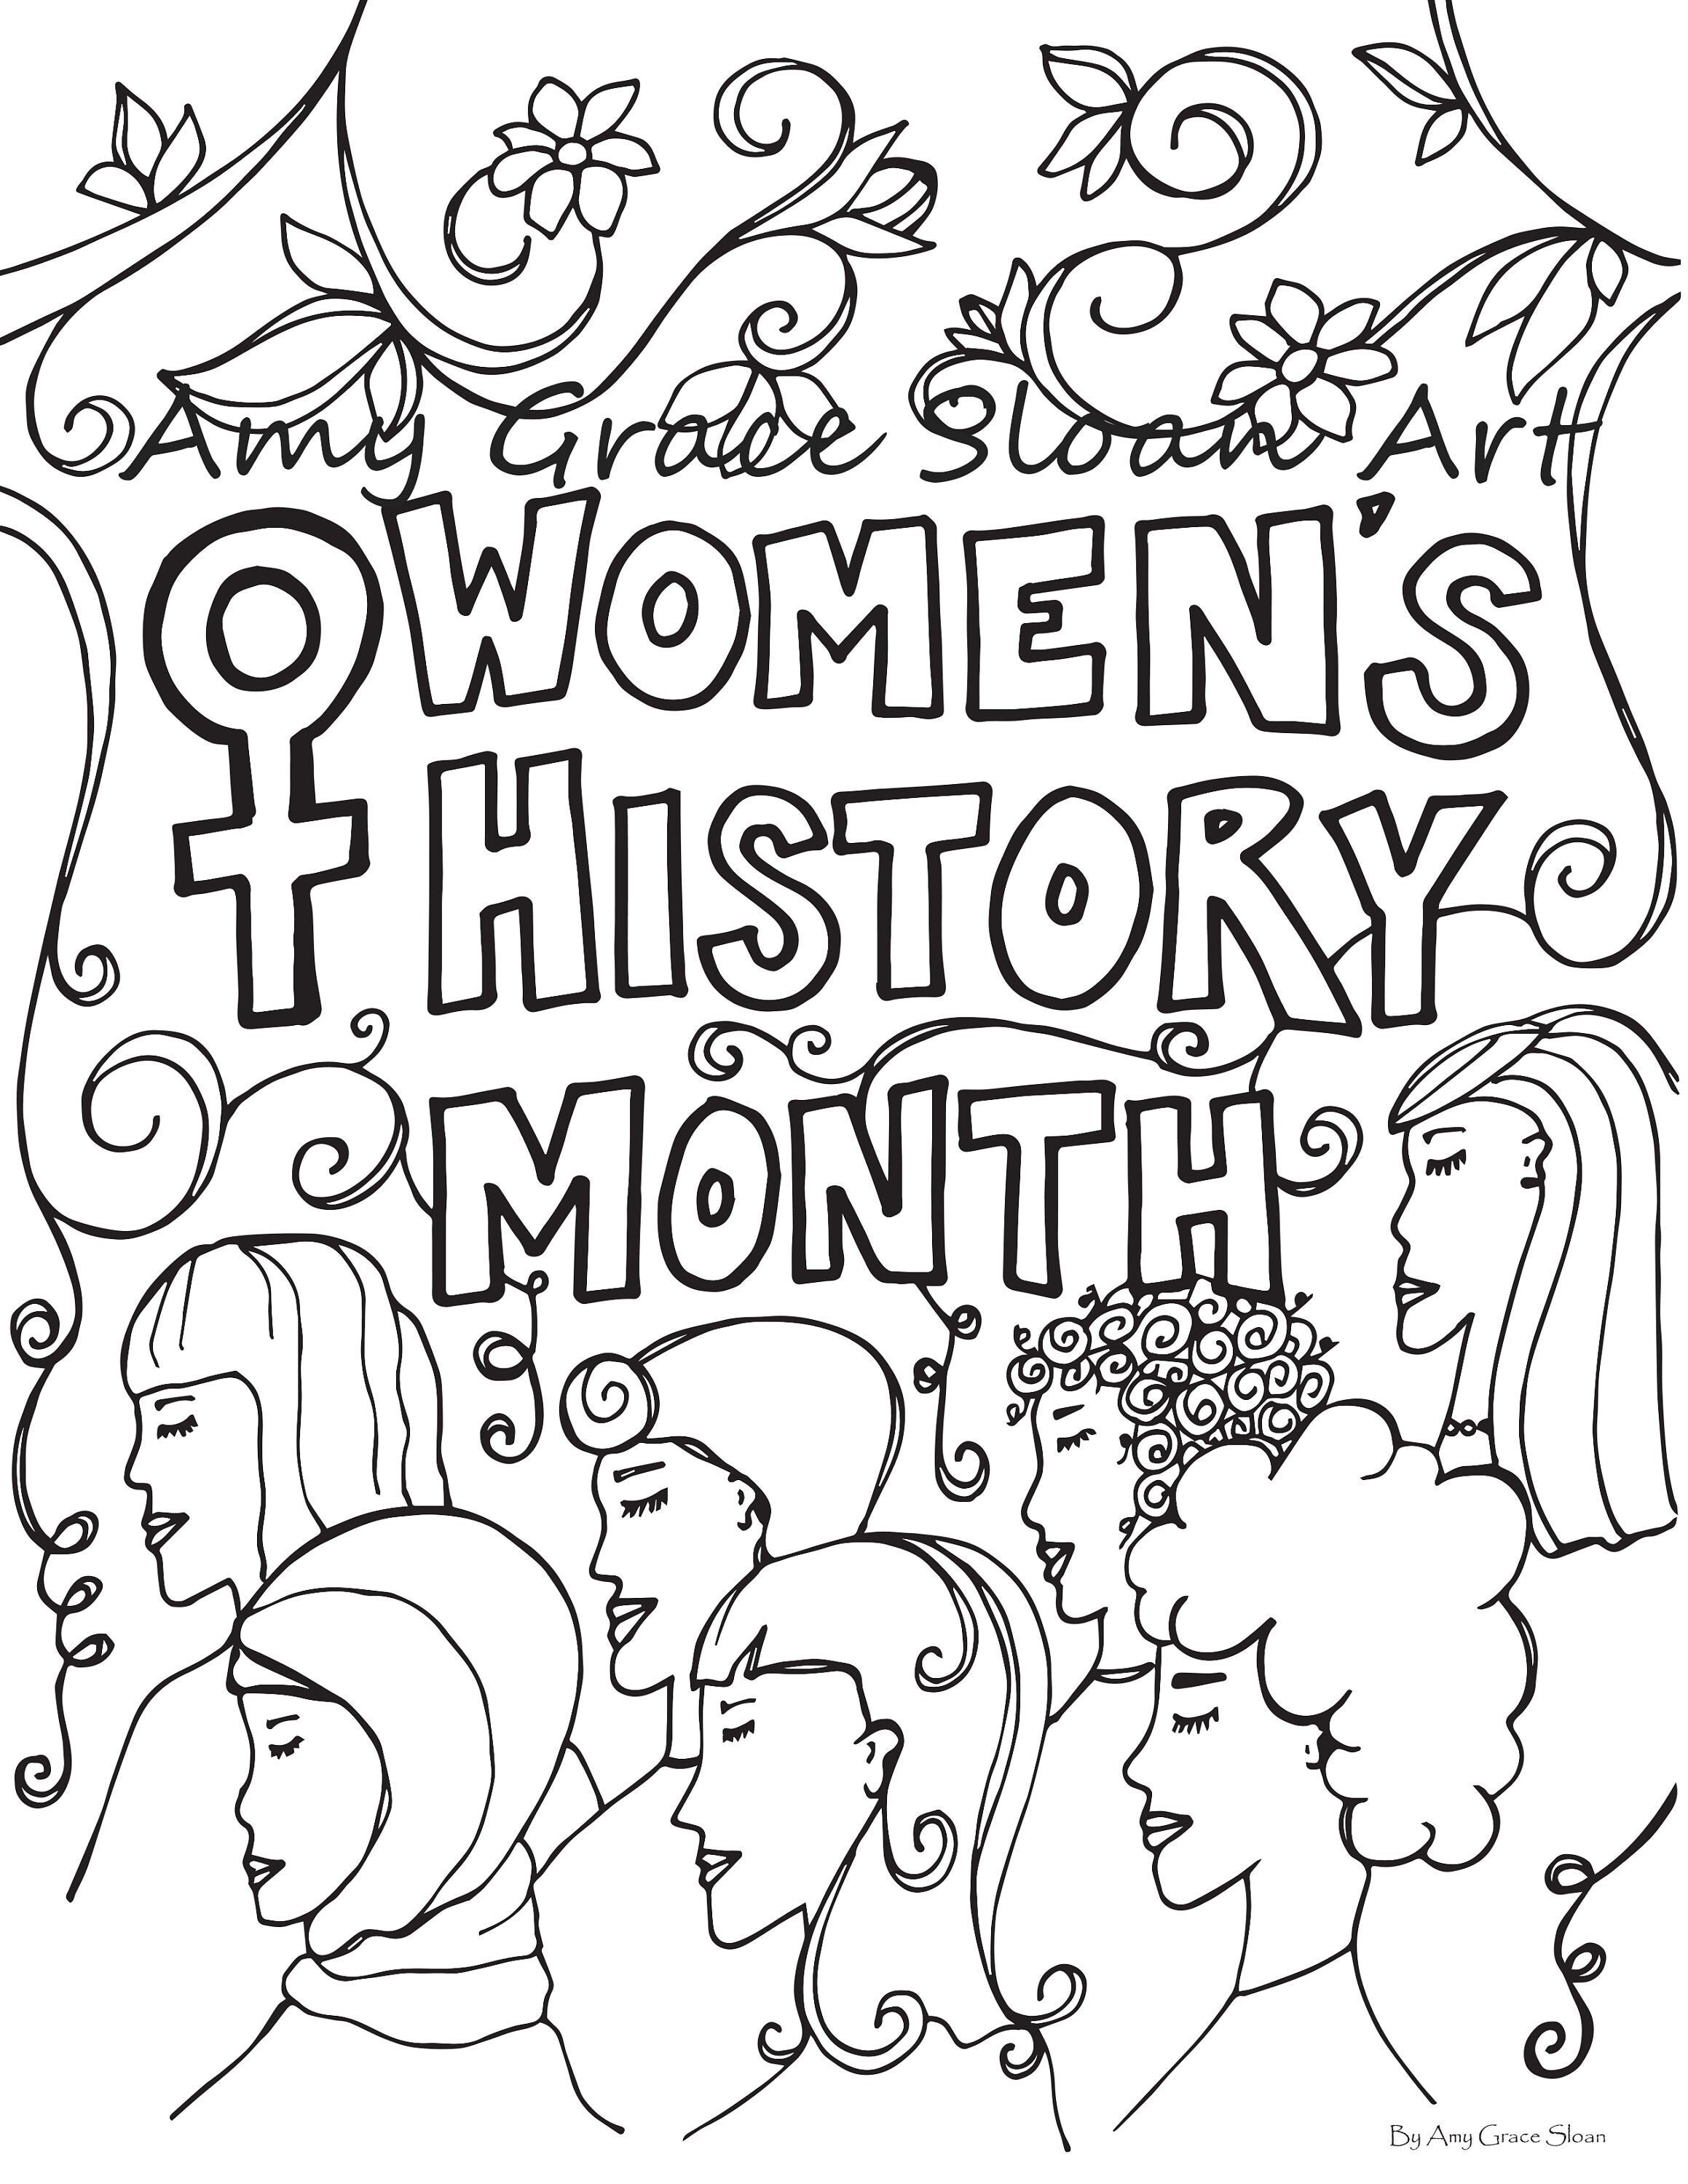 Amy Grace Sloan Art
WOMEN'S
HISTORY
MONTH
By Amy Grace Sloan